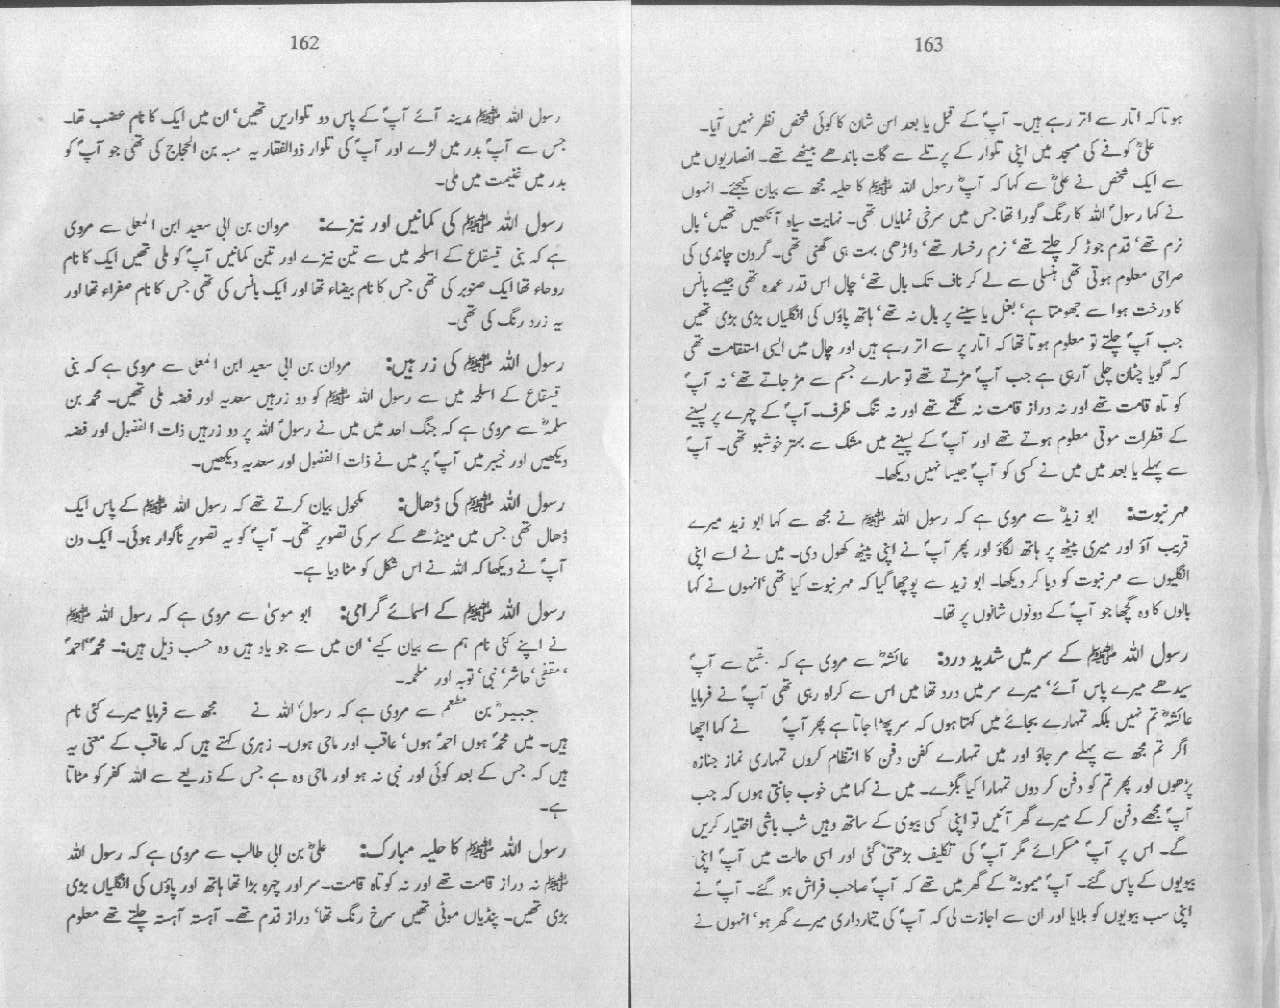 162
رسول اللہ ﷺ مدینہ آئے آپؐ کے پاس دو تلواریں تھیں‘ ان میں ایک کا نام عضب تھا۔
جس سے آپؐ بدر میں لڑے اور آپؐ کی تلوار ذوالفقار یہ منبہ بن الحجاج کی تھی جو آپؐ کو
بدر میں غنیمت میں ملی۔
رسول اللہ ﷺ کی کمانیں اور نیزے: مروان بن ابی سعید ابن المعلی سے مروی
ہے کہ بنی قینقاع کے اسلحہ میں سے تین نیزے اور تین کمانیں آپؐ کو ملی تھیں ایک کا نام
روحاء تھا ایک صنوبر کی تھی جس کا نام بیضاء تھا اور ایک بانس کی تھی جس کا نام صفراء تھا اور
یہ زرد رنگ کی تھی۔
رسول اللہ ﷺ کی زرہیں: مروان بن ابی سعید ابن المعلی سے مروی ہے کہ بنی
قینقاع کے اسلحہ میں سے رسول اللہ ﷺ کو دو زرہیں سعدیہ اور فضہ ملی تھیں۔ محمد بن
سلمہؓ سے مروی ہے کہ جنگ احد میں میں نے رسولؐ اللہ پر دو زرہیں ذات الفضول اور فضہ
دیکھیں اور خیبر میں آپؐ پر میں نے ذات الفضول اور سعدیہ دیکھیں۔
رسول اللہ ﷺ کی ڈھال: مکحول بیان کرتے تھے کہ رسول اللہ ﷺ کے پاس ایک
ڈھال تھی جس میں مینڈھے کے سر کی تصویر تھی۔ آپؐ کو یہ تصویر ناگوار ہوئی۔ ایک دن
آپؐ نے دیکھا کہ اللہ نے اس شکل کو مٹا دیا ہے۔
رسول اللہ ﷺ کے اسمائے گرامی: ابو موسیٰ سے مروی ہے کہ رسول اللہ ﷺ
نے اپنے کئی نام ہم سے بیان کیے‘ ان میں سے جو یاد ہیں وہ حسب ذیل ہیں:۔ محمدؐ‘ احمدؐ
‘ مقفیٰ‘ حاشر‘ نبی‘ توبہ اور ملحمہ۔
جبیرؓ بن مطعم سے مروی ہے کہ رسولؐ اللہ نے مجھ سے فرمایا میرے کئی نام
ہیں۔ میں محمدؐ ہوں احمدؐ ہوں‘ عاقب اور ماحی ہوں۔ زہری کہتے ہیں کہ عاقب کے معنی یہ
ہیں کہ جس کے بعد کوئی اور نبی نہ ہو اور ماحی وہ ہے جس کے ذریعے سے اللہ کفر کو مٹاتا
ہے۔
رسول اللہ ﷺ کا حلیہ مبارک: علیؓ بن ابی طالب سے مروی ہے کہ رسول اللہ
ﷺ نہ دراز قامت تھے اور نہ کوتاہ قامت۔ سر اور چہرہ بڑا تھا ہاتھ اور پاؤں کی انگلیاں بڑی
بڑی تھیں۔ پنڈیاں موٹی تھیں سرخ رنگ تھا‘ دراز قدم تھے۔ آہستہ آہستہ چلتے تھے معلوم
163
ہوتا کہ اتار سے اتر رہے ہیں۔ آپؐ کے قبل یا بعد اس شان کا کوئی شخص نظر نہیں آیا۔
علیؓ کوفے کی مسجد میں اپنی تلوار کے پرتلے سے گات باندھے بیٹھے تھے۔ انصاریوں میں
سے ایک شخص نے علیؓ سے کہا کہ آپؓ رسول اللہ ﷺ کا حلیہ مجھ سے بیان کیجئے۔ انہوں
نے کہا رسولؐ اللہ کا رنگ گورا تھا جس میں سرخی نمایاں تھی۔ نہایت سیاہ آنکھیں تھیں‘ بال
نرم تھے‘ قدم جوڑ کر چلتے تھے‘ نرم رخسار تھے‘ داڑھی بہت ہی گھنی تھی۔ گردن چاندی کی
صراحی معلوم ہوتی تھی ہنسلی سے لے کر ناف تک بال تھے‘ چال اس قدر عمدہ تھی جیسے بانس
کا درخت ہوا سے جھومتا ہے‘ بغل یا سینے پر بال نہ تھے‘ ہاتھ پاؤں کی انگلیاں بڑی بڑی تھیں
جب آپؐ چلتے تو معلوم ہوتا تھا کہ اتار پر سے اتر رہے ہیں اور چال میں ایسی استقامت تھی
کہ گویا چٹان چلی آرہی ہے جب آپؐ مڑتے تھے تو سارے جسم سے مڑ جاتے تھے‘ نہ آپؐ
کوتاہ قامت تھے اور نہ دراز قامت نہ نکتے تھے اور نہ تنگ ظرف۔ آپؐ کے چہرے پر پسینے
کے قطرات موتی معلوم ہوتے تھے اور آپؐ کے پسینے میں مشک سے بہتر خوشبو تھی۔ آپؐ
سے پہلے یا بعد میں میں نے کسی کو آپؐ جیسا نہیں دیکھا۔
مہر نبوت: ابو زیدؓ سے مروی ہے کہ رسول اللہ ﷺ نے مجھ سے کہا ابو زید میرے
قریب آؤ اور میری پیٹھ پر ہاتھ لگاؤ اور پھر آپؐ نے اپنی پیٹھ کھول دی۔ میں نے اسے اپنی
انگلیوں سے مہر نبوت کو دبا کر دیکھا۔ ابو زید سے پوچھا گیا کہ مہر نبوت کیا تھی‘ انہوں نے کہا
بالوں کا وہ گچھا جو آپؐ کے دونوں شانوں پر تھا۔
رسول اللہ ﷺ کے سر میں شدید درد: عائشہؓ سے مروی ہے کہ بقیع سے آپؐ
سیدھے میرے پاس آئے‘ میرے سر میں درد تھا میں اس سے کراہ رہی تھی آپؐ نے فرمایا
عائشہؓ تم نہیں بلکہ تمہارے بجائے میں کہتا ہوں کہ سر پھٹا جاتا ہے پھر آپؐ نے کہا اچھا
اگر تم مجھ سے پہلے مر جاؤ اور میں تمہارے کفن دفن کا انتظام کروں تمہاری نماز جنازہ
پڑھوں اور پھر تم کو دفن کر دوں تمہارا کیا بگڑے۔ میں نے کہا میں خوب جانتی ہوں کہ جب
آپؐ مجھے دفن کر کے میرے گھر آئیں تو اپنی کسی بیوی کے ساتھ وہیں شب باشی اختیار کریں
گے۔ اس پر آپؐ مسکرائے مگر آپؐ کی تکلیف بڑھتی گئی اور اسی حالت میں آپؐ اپنی
بیویوں کے پاس گئے۔ آپؐ میمونہؓ کے گھر میں تھے کہ آپؐ صاحب فراش ہو گئے۔ آپؐ نے
اپنی سب بیویوں کو بلایا اور ان سے اجازت لی کہ آپؐ کی تیمارداری میرے گھر ہو‘ انہوں نے